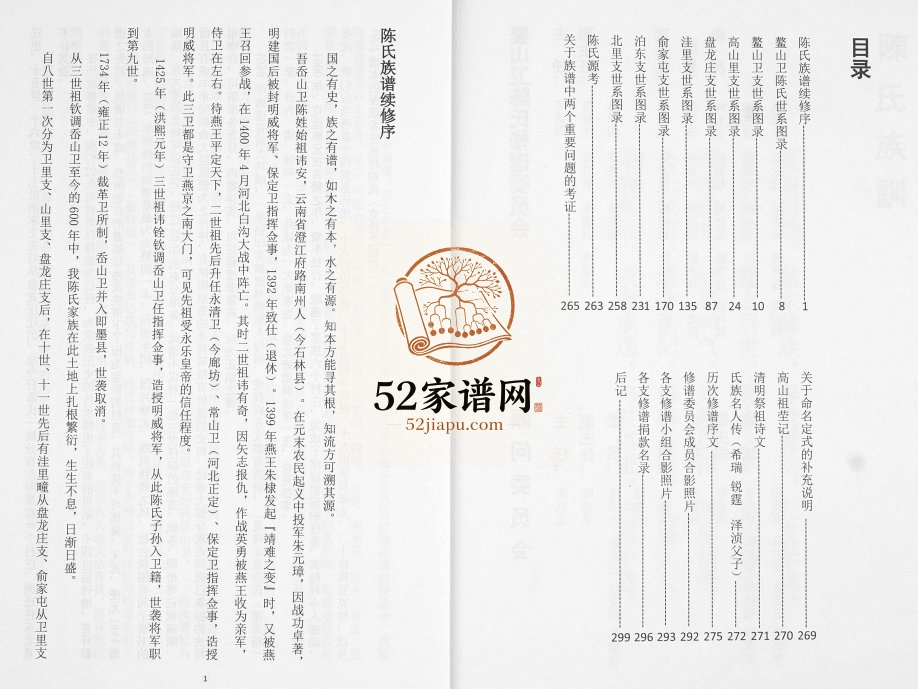 目录
陈氏族谱续修序 1
鳌山卫陈氏世系图录 8
鳌山卫支世系图录 10
高山里支世系图录 24
盘龙庄支世系图录 87
洼里支世系图录 135
俞家屯支世系图录 170
泊东支世系图录 231
北里支世系图录 258
陈氏源考 263
关于族谱中两个重要问题的考证 265
关于命名定式的补充说明 269
高山祖茔记 270
清明祭祖诗文 271
氏族名人传（希瑞 锐霆 泽浈父子） 272
历次修谱序文 275
修谱委员会成员合影照片 292
各支修谱小组合影照片 293
各支修谱捐款名录 296
后记 299
陈氏族谱续修序
国之有史，族之有谱，如木之有本，水之有源。知本方能寻其根，知流方可溯其源。
吾岙山卫陈姓始祖讳安，云南省澄江府路南州人（今石林县）。在元末农民起义中投军朱元璋，因战功卓著，
明建国后被封明威将军、保定卫指挥佥事，1392 年致仕（退休）。1399 年燕王朱棣发起『靖难之变』时，又被燕
王召回参战，在 1400 年 4 月河北白沟大战中阵亡。其时二世祖讳有奇，因矢志报仇，作战英勇被燕王收为亲军，
侍卫在左右。待燕王平定天下，二世祖先后升任永清卫（今廊坊）、常山卫（河北正定）、保定卫指挥佥事，诰授
明威将军。此三卫都是守卫燕京之南大门，可见先祖受永乐皇帝的信任程度。
1425 年（洪熙元年）三世祖讳铨钦调岙山卫任指挥佥事，诰授明威将军，从此陈氏子孙入卫籍，世袭将军职
到第九世。
1734 年（雍正 12 年）裁革卫所制，岙山卫并入即墨县，世袭取消。
从三世祖钦调岙山卫至今的 600 年中，我陈氏家族在此土地上扎根繁衍，生生不息，日渐日盛。
自八世第一次分为卫里支、山里支、盘龙庄支后，在十世、十一世先后有洼里疃从盘龙庄支、俞家屯从卫里支
1
52家谱网
52jiapu.com